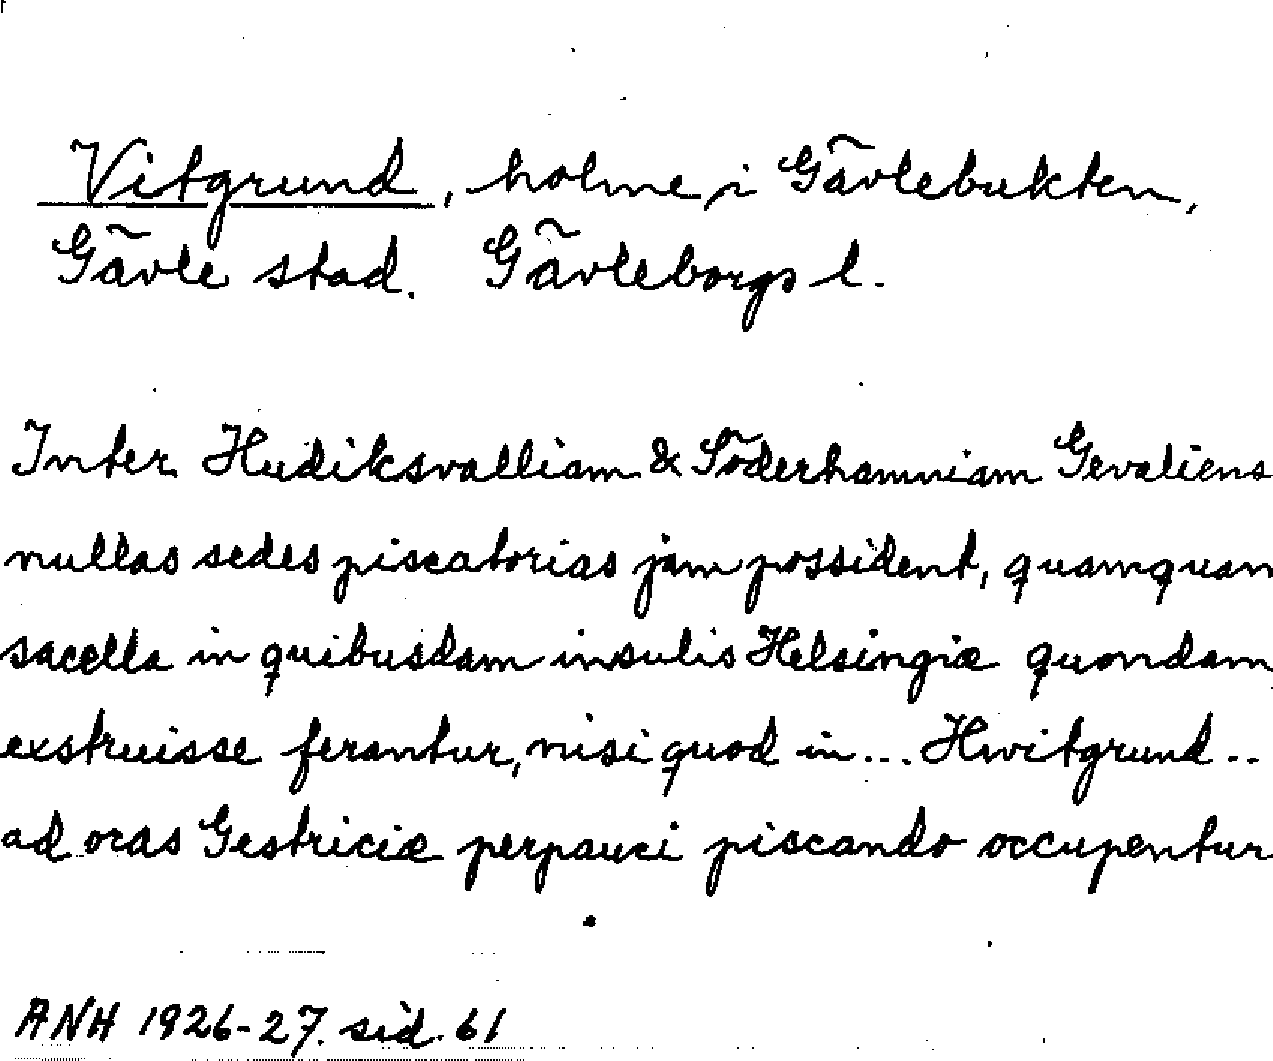 Vitgrund, holme i Gävlebukten,
Gävle stad. Gävleborgs l.
Inter Hudiksvalliam & Söderhamniam Gevaliens
nullas sedes piscatorias jam possident, quamquan
sacella in quibusdam insulis Helsingiæ quondam
exstruisse ferantur, nisi quod in... Hwitgrund..
ad oras Gestriciæ perpauci piscando occupentur
ANH 1926-27. sid. 61